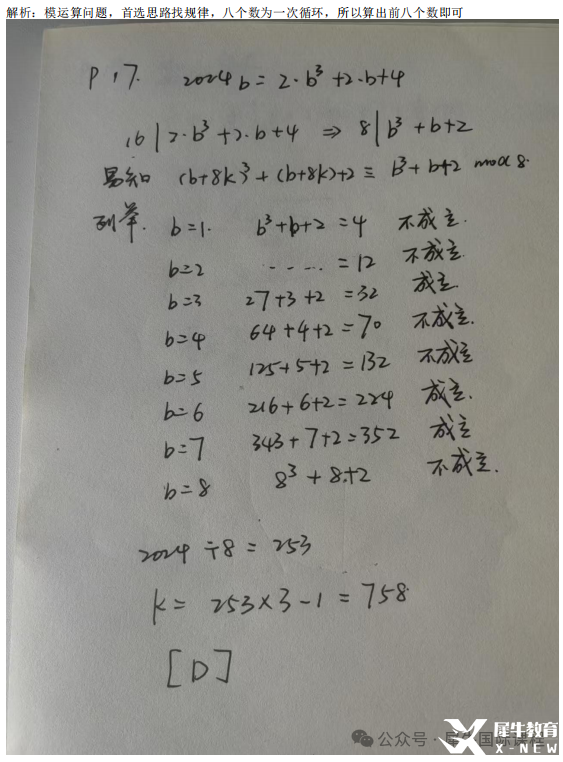 解析：模运算问题，首选思路找规律，八个数为一次循环，所以算出前八个数即可
P 17. 2024b = 2·b³+2·b+4
16 | 2·b³+2·b+4 ⇒ 8 | b³+b+2
易知 (b+8k)³+(b+8k)+2 ≡ b³+b+2 mod 8.
列举. b=1. b³+b+2 = 4 不成立.
b=2 ..... = 12 不成立.
b=3 27+3+2 = 32 成立.
b=4 64+4+2 = 70 不成立.
b=5 125+5+2 = 132 不成立
b=6 216+6+2 = 224 成立.
b=7 343+7+2 = 352 成立
b=8 8³+8+2 不成立.
2024 ÷ 8 = 253
K = 253×3-1 = 758
[D]
公众号·犀牛国际课程
犀牛教育
X-NEW